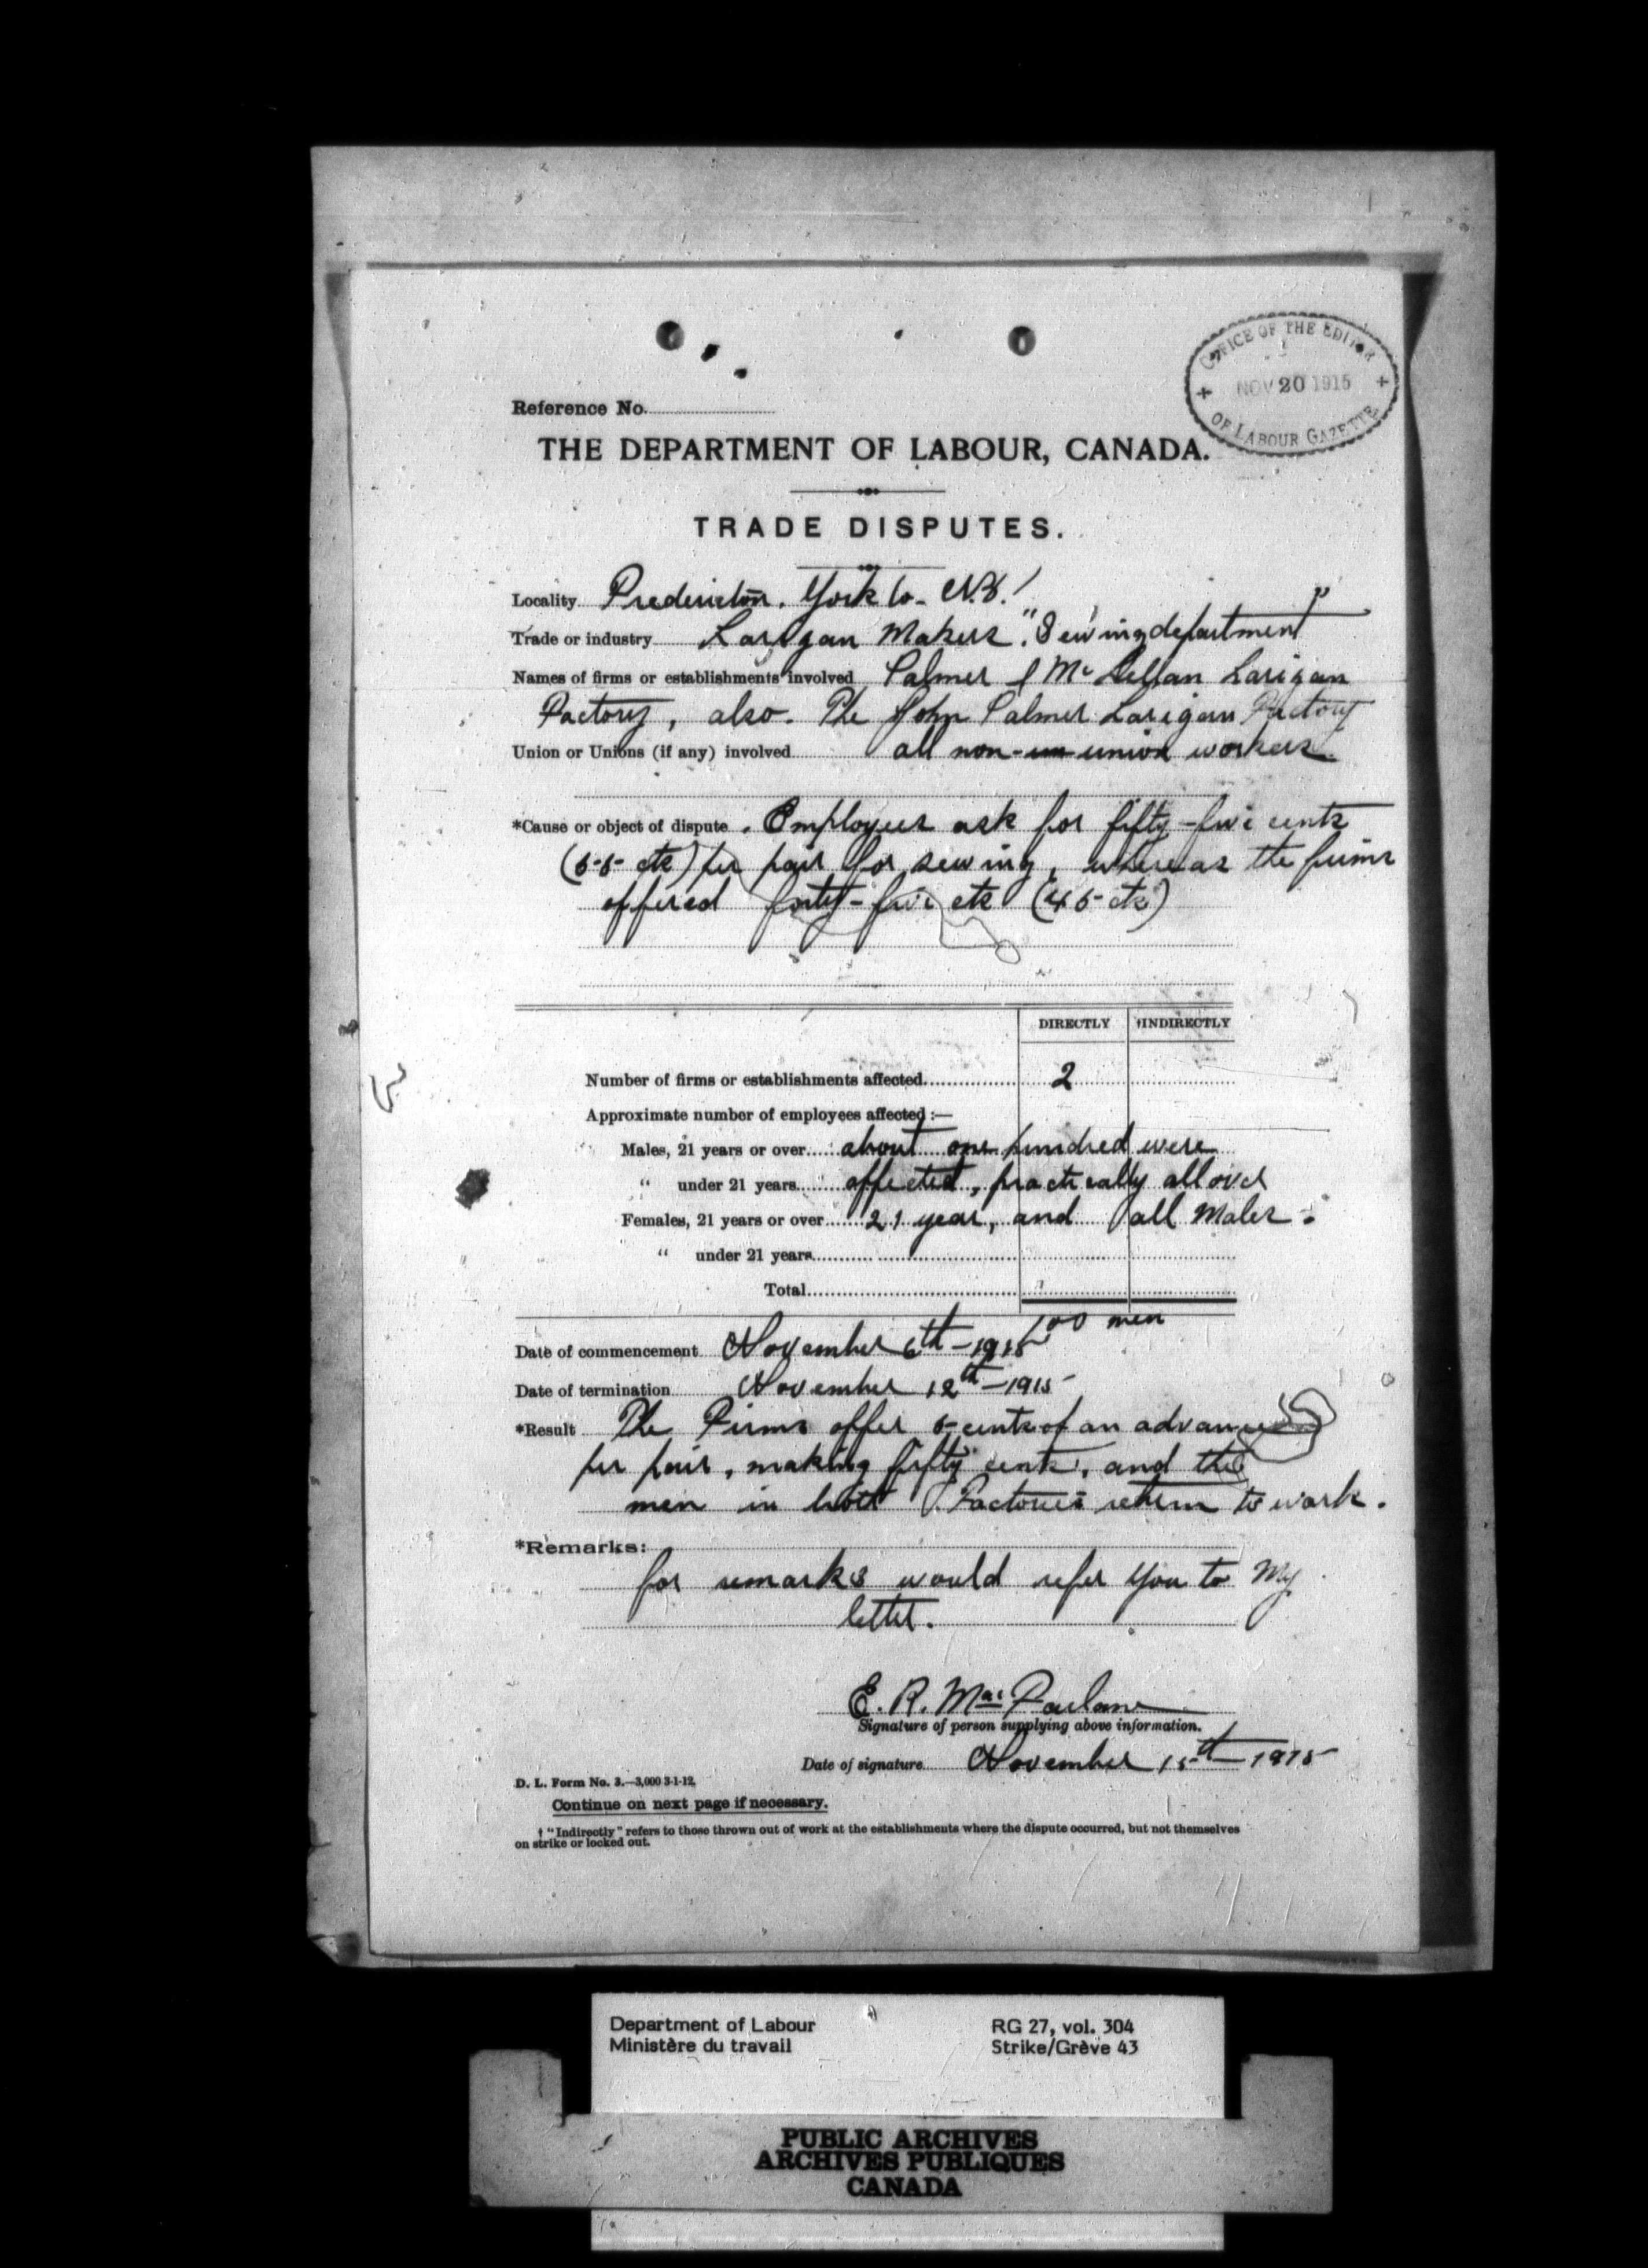 OFFICE OF THE EDITOR
NOV 20 1915
OF LABOUR GAZETTE
Reference No.
THE DEPARTMENT OF LABOUR, CANADA.
TRADE DISPUTES.
Locality Fredericton. York Co. N.B.
Trade or industry Larigan Makers. "Sewing department"
Names of firms or establishments involved Palmer & McLellan Larigan
Factory, also. The John Palmer Larigan Factory
Union or Unions (if any) involved all non-un union workers
*Cause or object of dispute. Employees ask for fifty-five cents
(55 cts) per pair for sewing, whereas the firms
offered forty-five cts (45 cts)
DIRECTLY †INDIRECTLY
Number of firms or establishments affected 2
Approximate number of employees affected:—
Males, 21 years or over about one hundred were
" under 21 years affected, practically all over
Females, 21 years or over 21 year, and all Males.
" under 21 years
Total
100 men
Date of commencement November 6th-1915
Date of termination November 12th-1915
*Result The Firms offer 5 cents of an advance
per pair, making fifty cents, and the
men in both Factories return to work.
*Remarks:
for remarks would refer you to My
letter.
E. R. MacFarlane
Signature of person supplying above information.
Date of signature November 15th-1915
D. L. Form No. 3.—3,000 3-1-12.
Continue on next page if necessary.
† "Indirectly" refers to those thrown out of work at the establishments where the dispute occurred, but not themselves
on strike or locked out.
Department of Labour RG 27, vol. 304
Ministère du travail Strike/Grève 43
PUBLIC ARCHIVES
ARCHIVES PUBLIQUES
CANADA